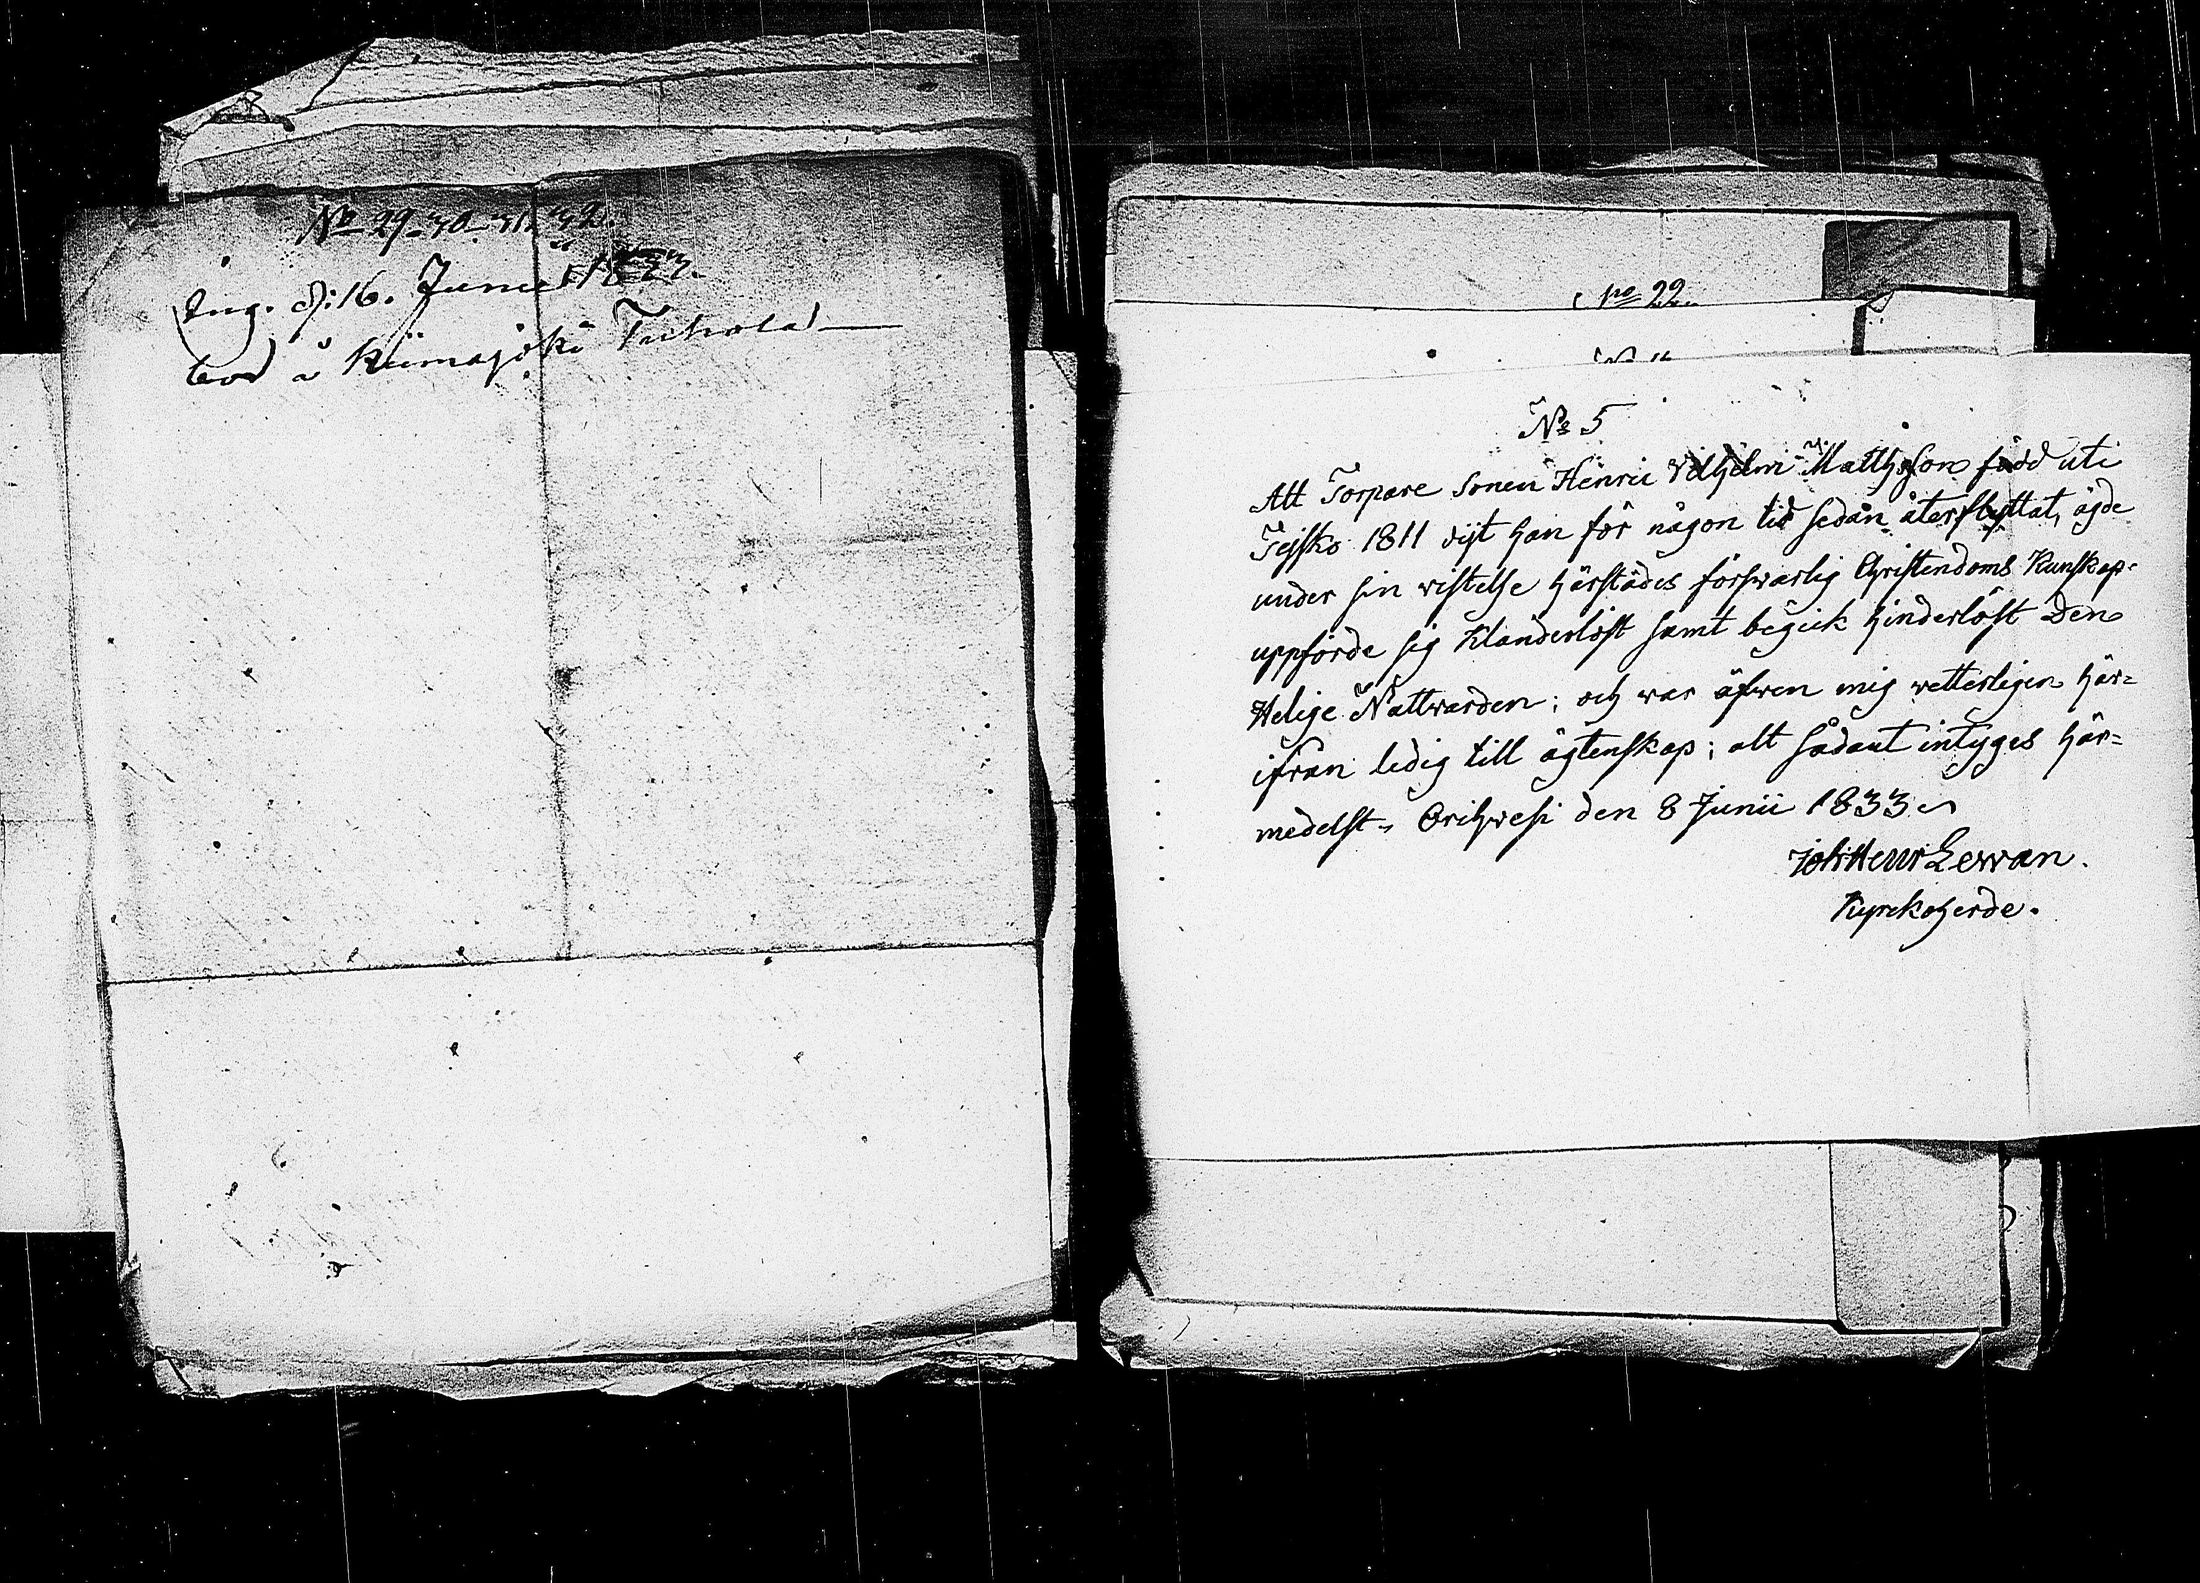 No 29-30-31-32.
Ing. d: 16. Junii 1833.
bod å Kiimajoki Tuhola
No 22.
No 5
Att Torpare sonen Henric Vilhelm Mattsson född uti
Tejsko 1811 dijt han för någon tid sedan återflyttat, ägde
under sin vistelse härstädes försvarlig Christendoms Kunskap
uppförde sig Klanderlöst samt begick hinderlöst Den
Helige Nattvarden; och var äfven mig vetterligen här=
ifrån ledig till ägtenskap; alt sådant intyges här=
medelst. Orihvesi den 8 Junii 1833.
Joh Henr Lewan.
Kyrckoherde.